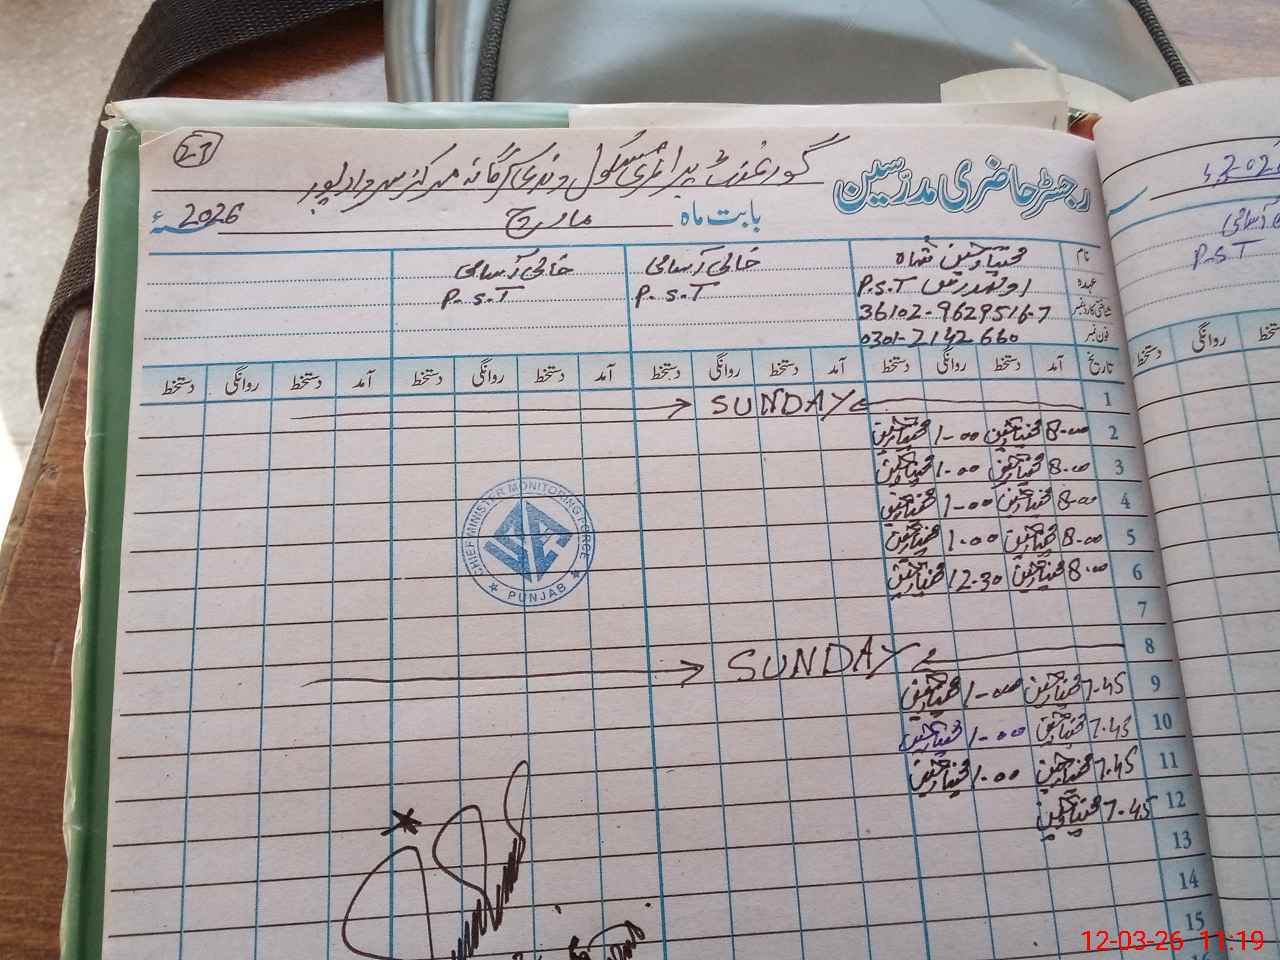 23
رجسٹر حاضری مدرسین گورنمنٹ پرائمری سکول مرکز سردارپور
بابت ماہ مارچ 2026ء
نام مختیار حسین شاہ خالی آسامی خالی آسامی
عہدہ اول مدرس P.S.T P.S.T P.S.T
شناختی کارڈ نمبر 36102-9629516-7
فون نمبر 0301-2142660
تاریخ آمد دستخط روانگی دستخط آمد دستخط روانگی دستخط آمد دستخط روانگی دستخط
1 SUNDAY
2 8-00 مختیار حسین 1-00 مختیار حسین
3 8-00 مختیار حسین 1-00 مختیار حسین
4 8-00 مختیار حسین 1-00 مختیار حسین
5 8-00 مختیار حسین 1-00 مختیار حسین
6 8-00 مختیار حسین 12-30 مختیار حسین
7
8 SUNDAY
9 7-45 مختیار حسین 1-00 مختیار حسین
10 7-45 مختیار حسین 1-00 مختیار حسین
11 7-45 مختیار حسین 1-00 مختیار حسین
12 7-45 مختیار حسین
13
14
15
CHIEF MINISTER MONITORING FORCE
PUNJAB
P.S.T
روانگی دستخط
12-03-26 11:19